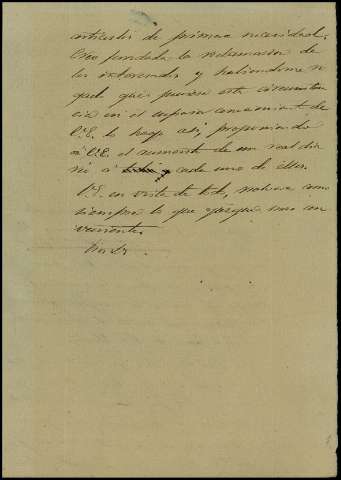 artículos de primera necesidad.
Creo fundada la reclamacion de
los interesados y habiendome
que pusiese esta circunstan
cia en el superior conocimiento de
V.E. lo hago asi, proponiendo
a V.E. el aumento de un real dia
rio á cada uno de ellos.
V.E. en vista de todo, resolverá como
siempre lo que juzgue mas con
veniente.